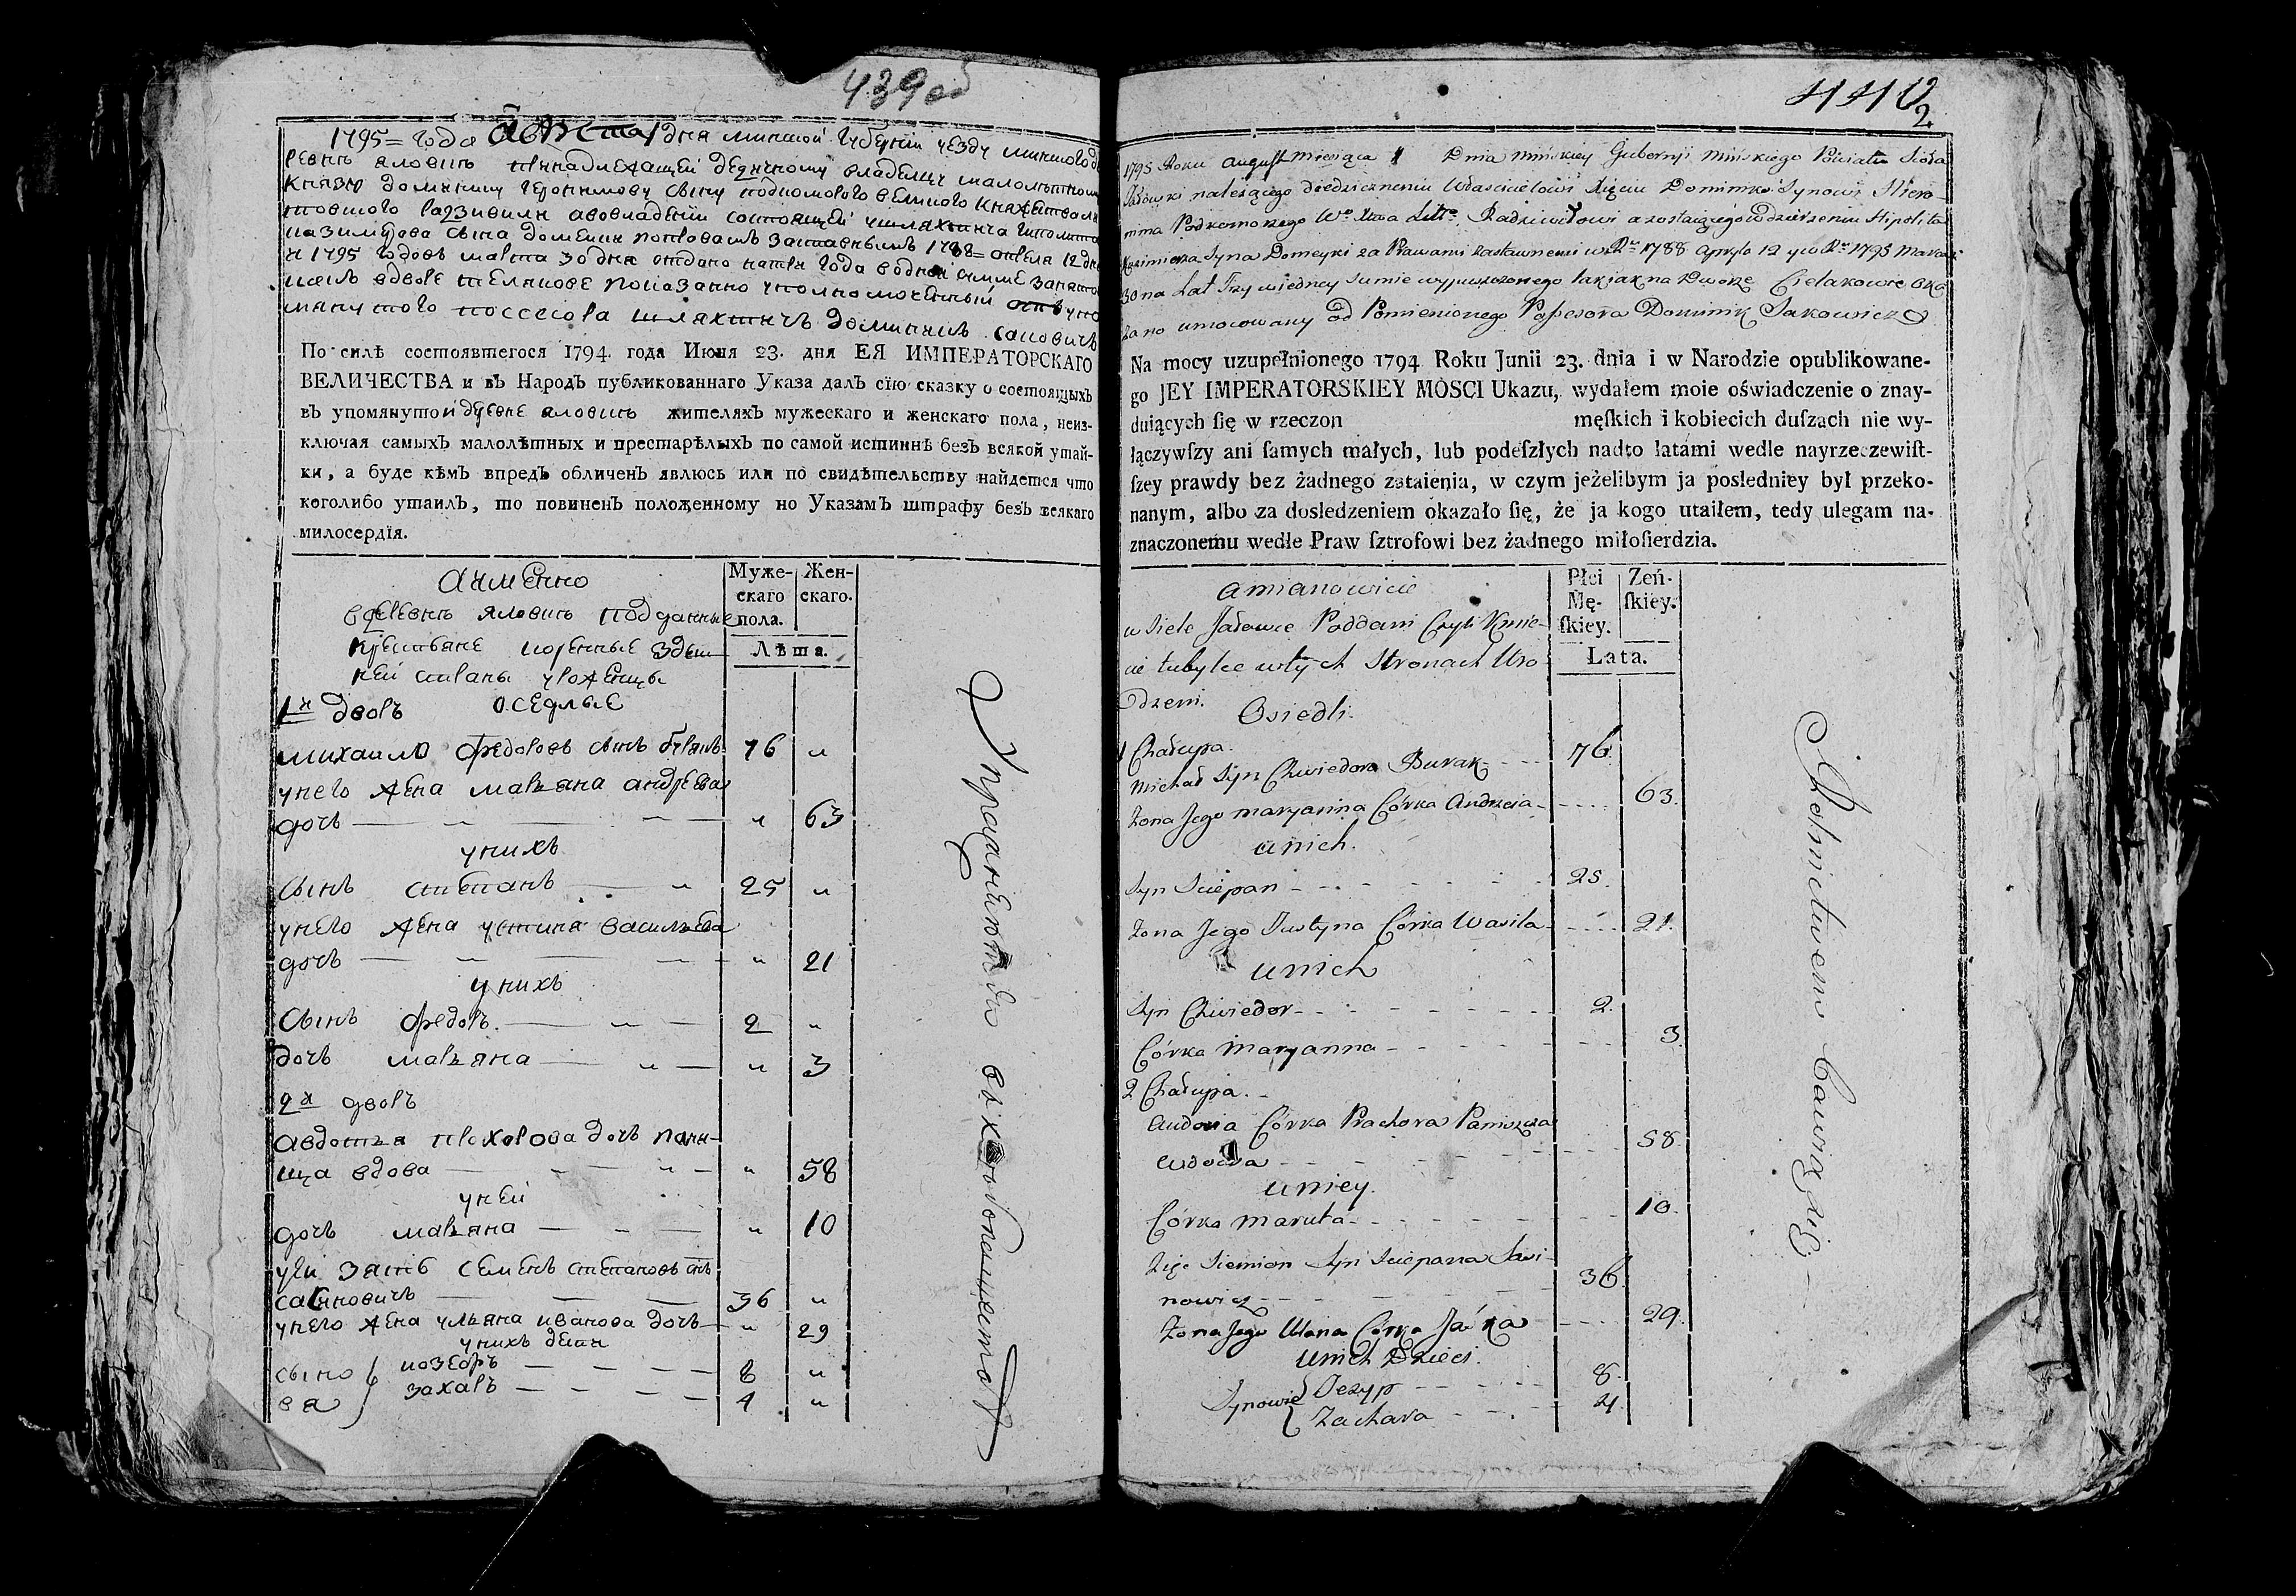 439 об
1795= года августа 1 дня минской губернїи уезду минского де
ревнѣ яловикъ принадлежащей дедичному владелцу малолѣтному
Князю доминику геронимову сыну подкоморого великого Княжества ли
товского радзивилу а во владенїи состоящей у шляхтича гиполита
казимерова сына домейки по правамъ заставнымъ 1788= апреля 12 дня
и 1795 годовъ марта 30 дня отдано на три года в одной сумме
какъ в дворе телякове показанно уполномоченный отъ упо
мянутого поссесора шляхтичь доминикъ сацовичъ
По силѣ состоявшегося 1794. года Июня 23. дня ЕЯ ИМПЕРАТОРСКАГО
ВЕЛИЧЕСТВА и въ Народъ публикованнаго Указа далъ сїю сказку о состоящыхъ
въ упомянутой деревне яловикъ жителяхъ мужескаго и женскаго пола, неиз-
ключая самыхъ малолѣтных и престарѣлыхъ по самой истиннѣ безъ всякой утай-
ки, а буде кѣмъ впредъ обличенъ явлюсь или по свидѣтельству найдется что
коголибо утаилъ, то повиненъ положенному но Указамъ штрафу безъ всякаго
милосердїя.
а имЕнно
в деревнѣ яловикъ подданные
крестьяне коренные здеш
ней стораны уроженцы
оседлые
Муже-
скаго
пола.
Жен-
скаго.
Лѣта.
1й дворъ
михаило федоровъ сынъ буракъ 76 "
у него жена марьяна андреева
дочь — " — " — " 63
у нихъ
сынъ степанъ — " 25 "
у него жена устина васильева
дочь — " — " — " 21
у нихъ
сынъ федоръ. — " — 2 "
дочь марьяна — " — " 3
2й дворъ
авдотья прохорова дочь пани-
ща вдова — " — " 58
у ней
дочь марьяна — " 10
у ей зять семенъ степановъ снъ
савиновичъ — 36 "
у него жена ульяна иванова дочь — " 29
у нихъ дети
сыно
вя
иозефъ — 8 "
захаръ — 4 "
Упражняются въ хлебопашествѣ
440
2
1795 Roku august miesiąca 1 Dnia Minskiey Gubernji Mińskiego Powiatu Sioła
Jałowki należącego Dziedzicznemu Właścicielowi Xięciu Dominiko: Synowi Hiero-
nima Podkomorzego Wo Xtwa Litto Radziwiłłowi a zostaiącego w dzierzeniu Hipolita
Kazimierza Syna Domeyki za Prawami Zastawnemi w Rku 1788 Apryla 12 y w Rku 1795 Marca
30 na Lat Trzy w iedney Sumie wypuszczonego tak iak na Dworze Cielakowie oka
zano umocowany od Pomienionego Possesora Dominik Sakowicz
Na mocy uzupełnionego 1794 Roku Junii 23. dnia i w Narodzie opublikowane-
go JEY IMPERATORSKIEY MOSCI Ukazu, wydałem moie oświadczenie o znay-
duiących ſię w rzeczon męſkich i kobiecich duſzach nie wy-
łączywſzy ani ſamych małych, lub podeſzłych nadto latámi wedle nayrzeczewiſt-
ſzey prawdy bez żadnego zataienia, w czym jeżelibym ja posłedniey był przeko-
nanym, albo za dosledzeniem okazało ſię, że ja kogo utaiłem, tedy ulegam na-
znaczonemu wedłe Praw ſztrofowi bez żadnego miłoſierdzia.
a mianowicie
w Siele Jałowce Poddani Czyli Kmie-
cie tubylce w tych Stronach Uro
dzeni.
Osiedli.
Płci
Mę-
ſkiey.
Zeń-
ſkiey.
Lata.
1 Chałupa.
Michał Syn Chwiedora Burak - - - 76.
Zona Jego maryanna Córka Andrzeia - - - - - 63.
u nich.
Syn Sciepan - - - - - 25.
Zona Jego Justyna Córka Wasila - - - - - 21.
u nich
Syn Chwiedor - - - - - 2.
Córka Maryanna - - - - - 3.
2 Chałupa.
Audocia Córka Prachora Paniszcza
wdowa - - - - - 58.
u niey.
Córka Maruta - - - - - 10.
Zięć Siemion Syn Sciepana Sawi-
nowicz - - - - - 36.
Zona Jego Ulana Córka Jáńka - - - - 29.
u nich Dzieci.
Synowie
Jezyp - - - - 8.
Zachara - - - - 4.
Rolnictwem bawią się